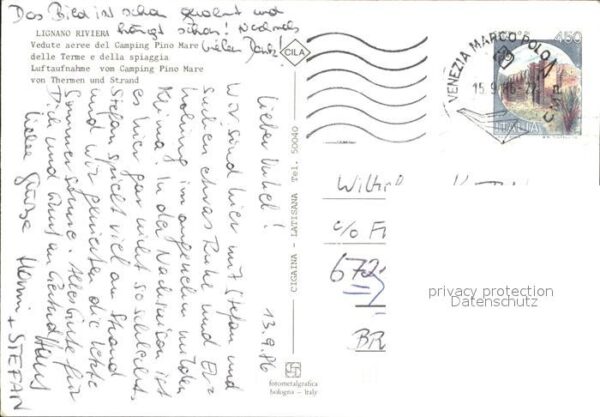 Das Bild ist schon gerahmt und
hängt schon! Nochmals
vielen Dank!
LIGNANO RIVIERA
Vedute aeree del Camping Pino Mare
delle Terme e della spiaggia
Luftaufnahme vom Camping Pino Mare
von Thermen und Strand
CILA
13.9.86
Lieber Onkel!
Wir sind hier mit Stefan und
suchen etwas Ruhe und Er-
holung im angenehm milden
Klima. In der Nachsaison ist
es hier gar nicht so schlecht.
Stefan spielt viel am Strand
und wir genießen die letzte
Sommersonne. Alles Gute für
Dich und Gruß an Gertrud
Liebe Grüße
+ STEFAN
CIGAINA - LATISANA Tel. 50040
fotometalgrafica
bologna - italy
VENEZIA MARCO POLO
15.9
450
ITALIA
c/o
672
BR
privacy protection
Datenschutz